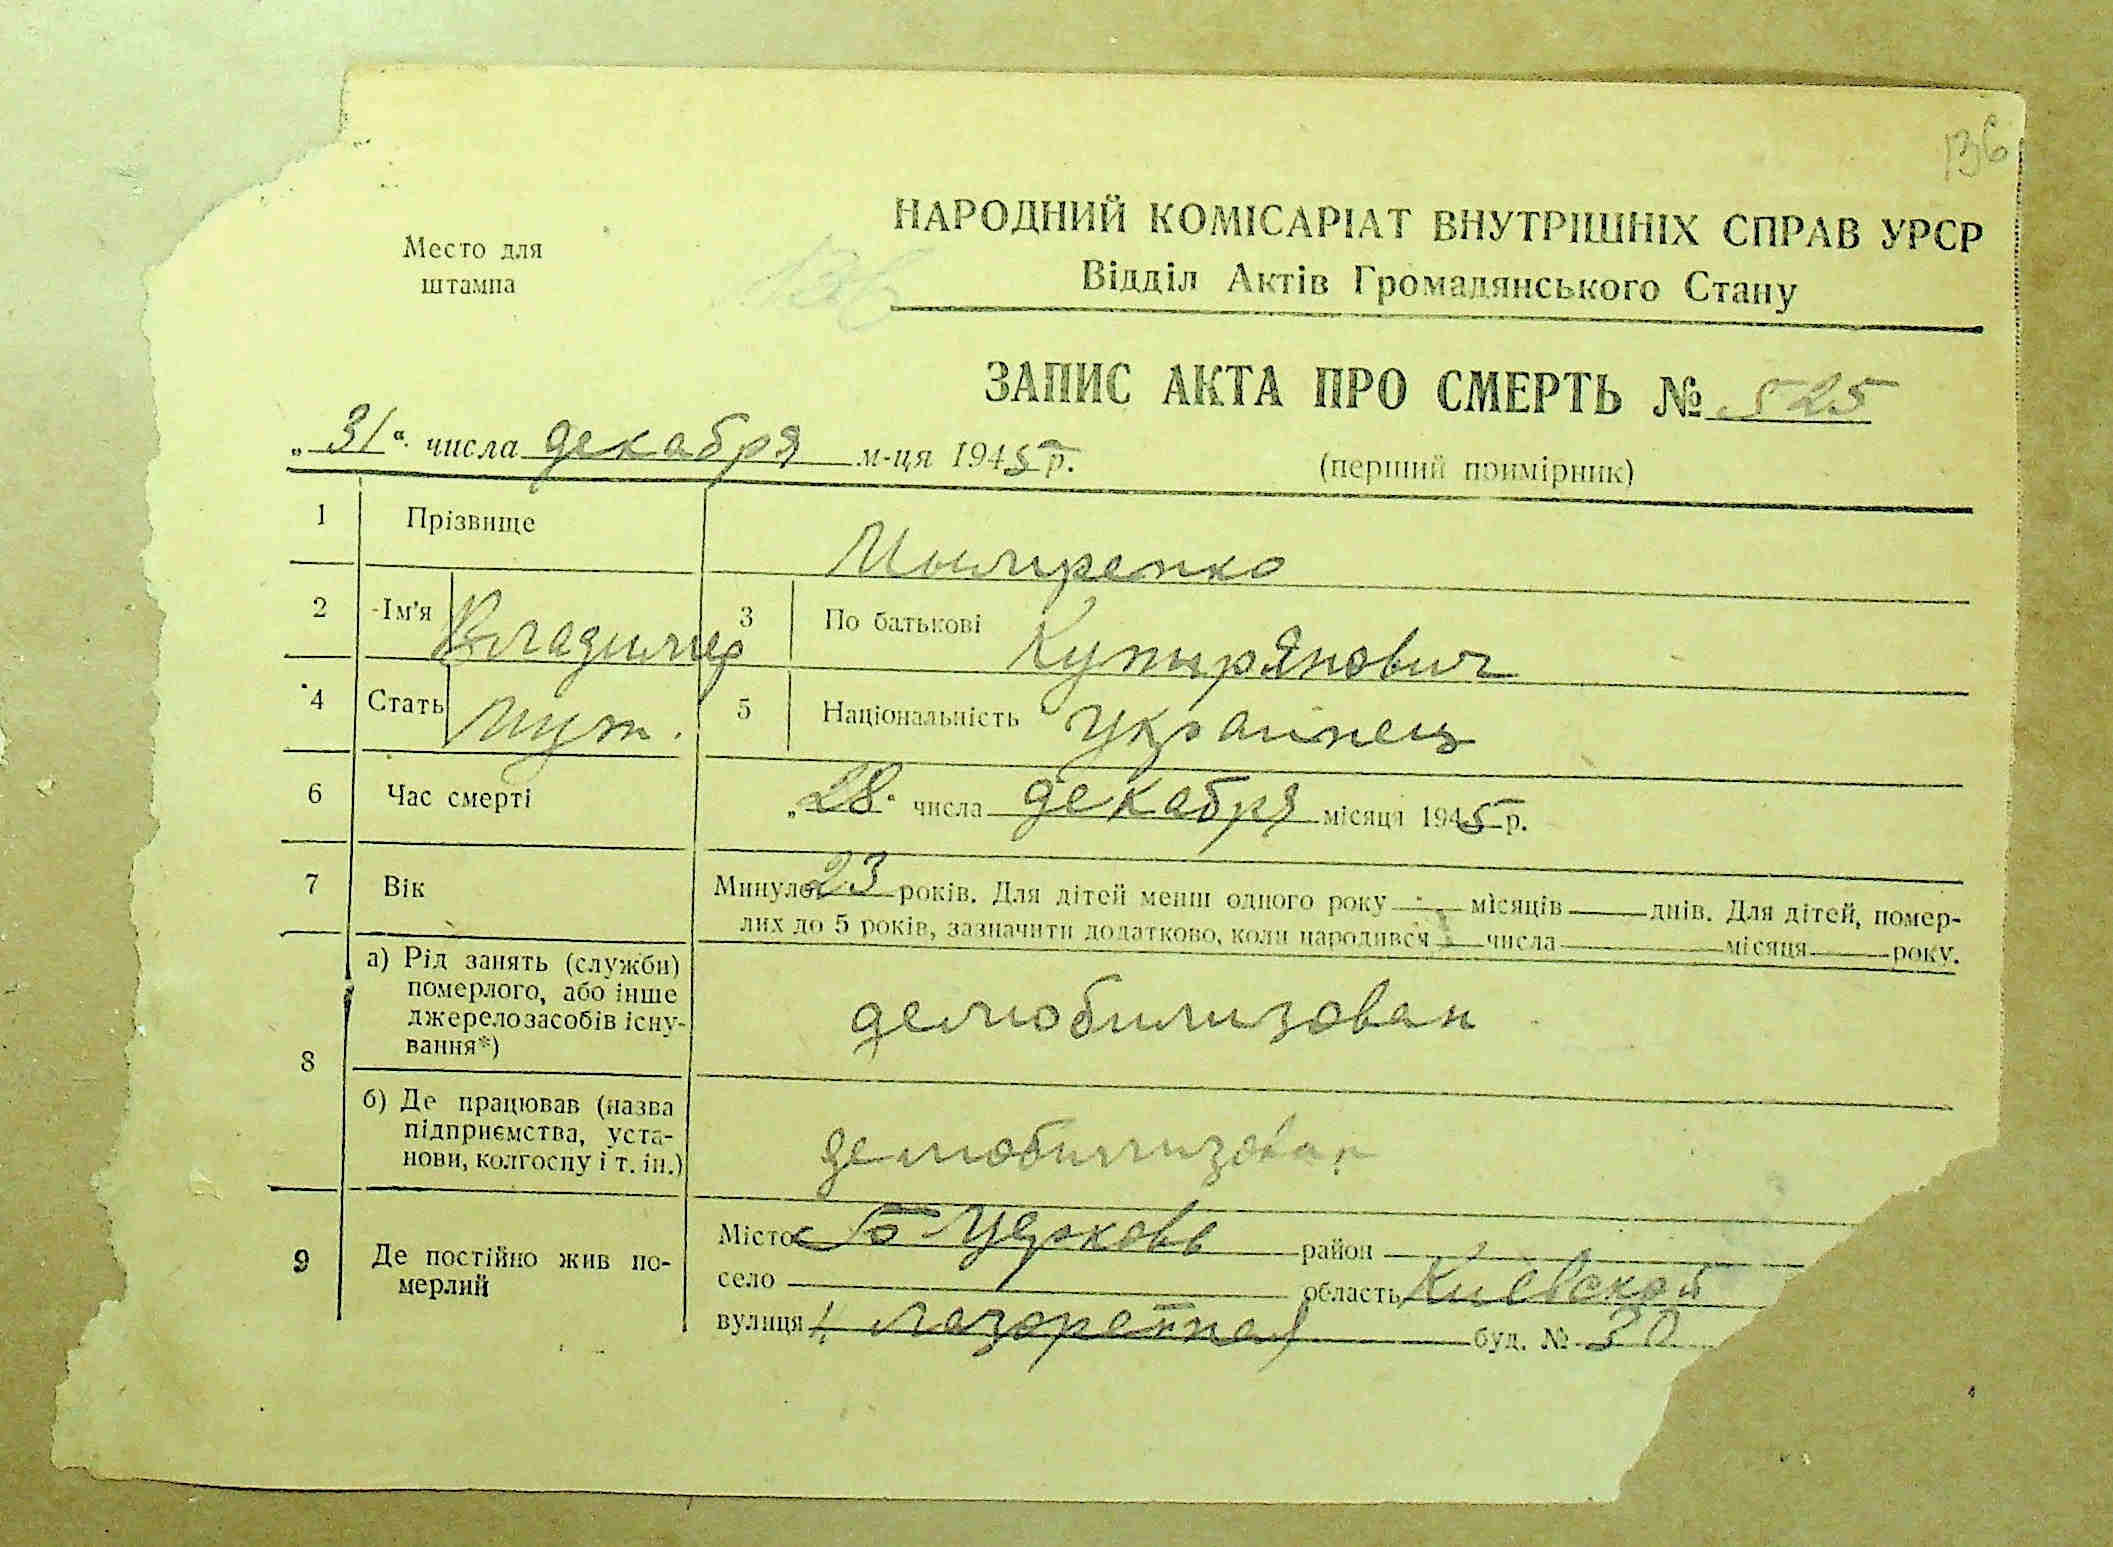 136
Место для
штампа
136
НАРОДНИЙ КОМІСАРІАТ ВНУТРІШНІХ СПРАВ УРСР
Відділ Актів Громадянського Стану
ЗАПИС АКТА ПРО СМЕРТЬ № 525
„31“ числа декабря м-ця 1945 р.
(перший примірник)
1 Прізвище
2 Ім'я Владимир 3 По батькові Купирянович
4 Стать муж. 5 Національність украинец
6 Час смерті „28“ числа декабря місяця 1945 р.
7 Вік Минуло 23 років. Для дітей менш одного року місяців днів. Для дітей, помер-
лих до 5 років, зазначити додатково, коли народився числа місяця року.
8 а) Рід занять (служби)
померлого, або інше
джерело засобів існу-
вання*)
демобилизован
б) Де працював (назва
підприємства, уста-
нови, колгоспу і т. ін.)
демобилизован
9 Де постійно жив по-
мерлий
Місто Б Церковь район
село область Киевской
вулиця буд. № 30